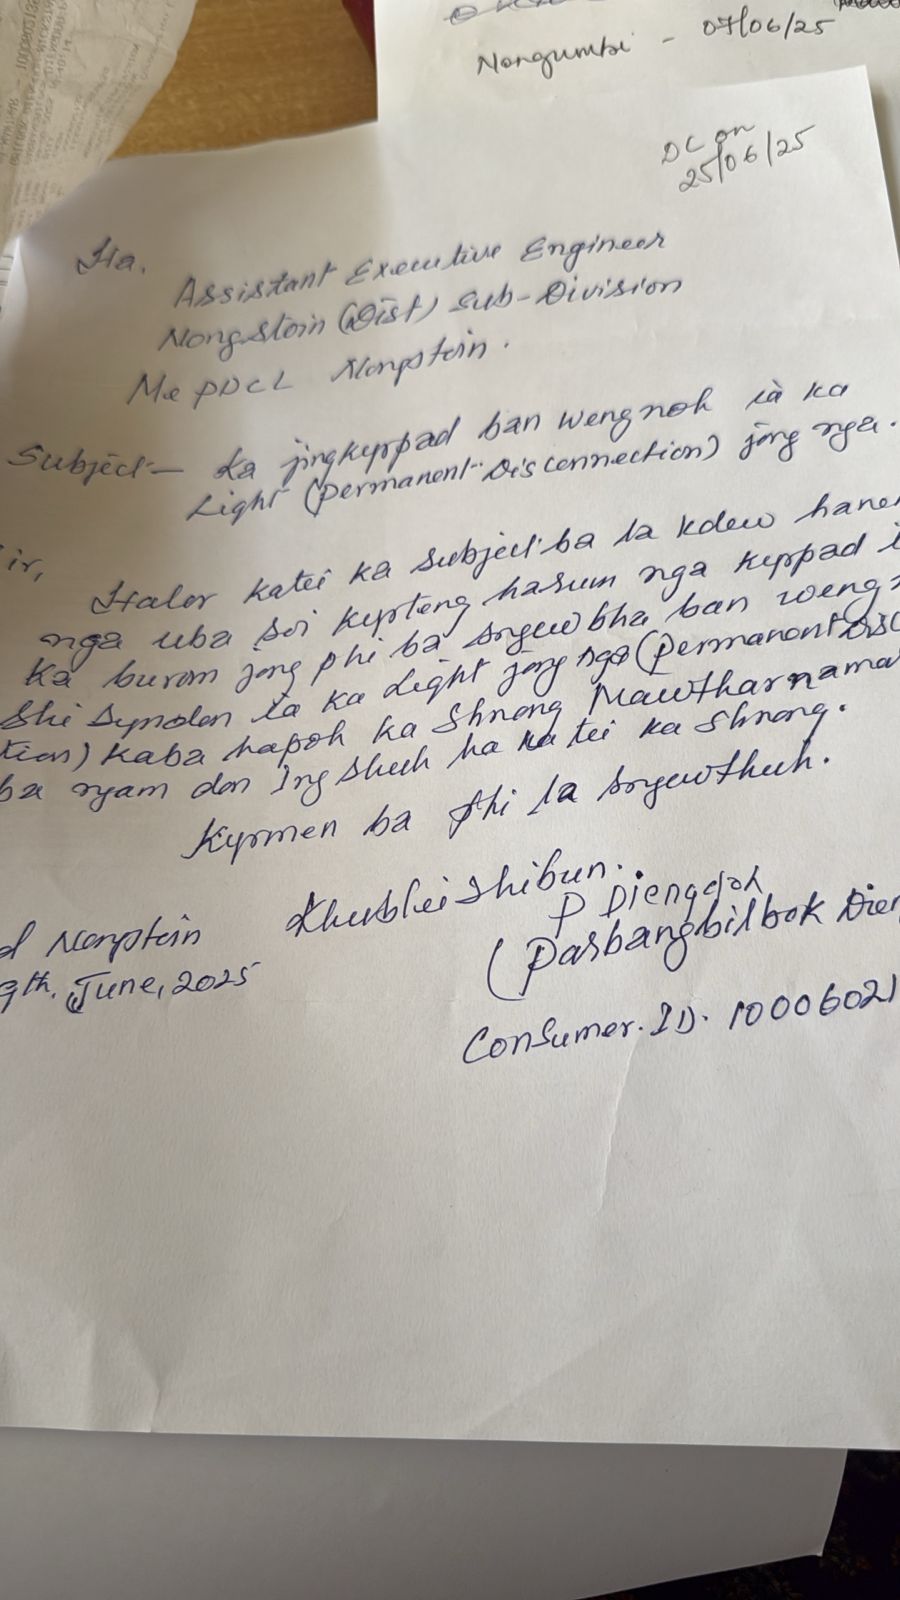 Nongumbi - 07/06/25
DC on
25/06/25
Ha.
Assistant Executive Engineer
Nongstoin (Dist) Sub-Division
MePDCL Nongstoin.
Subject:- Ka jingkyrpad ban weng noh ia ka
Light (Permanent Disconnection) jong nga.
ir,
Halor katei ka subject ba la kdew hane
nga uba soi kyrteng harum nga kyrpad i
ka burom jong phi ba sngewbha ban weng
shi syndon ia ka Light jong nga (Permanent Disc
tion) kaba hapoh ka Shnong Mawtharnama
ba ngam don Ing shuh ha katei ka Shnong.
Kyrmen ba phi la sngewthuh.
Khublei shibun.
d Nongstoin
9th. June, 2025
P Diengdoh
(Pasbangbilbok Dien
Consumer. ID. 10006021